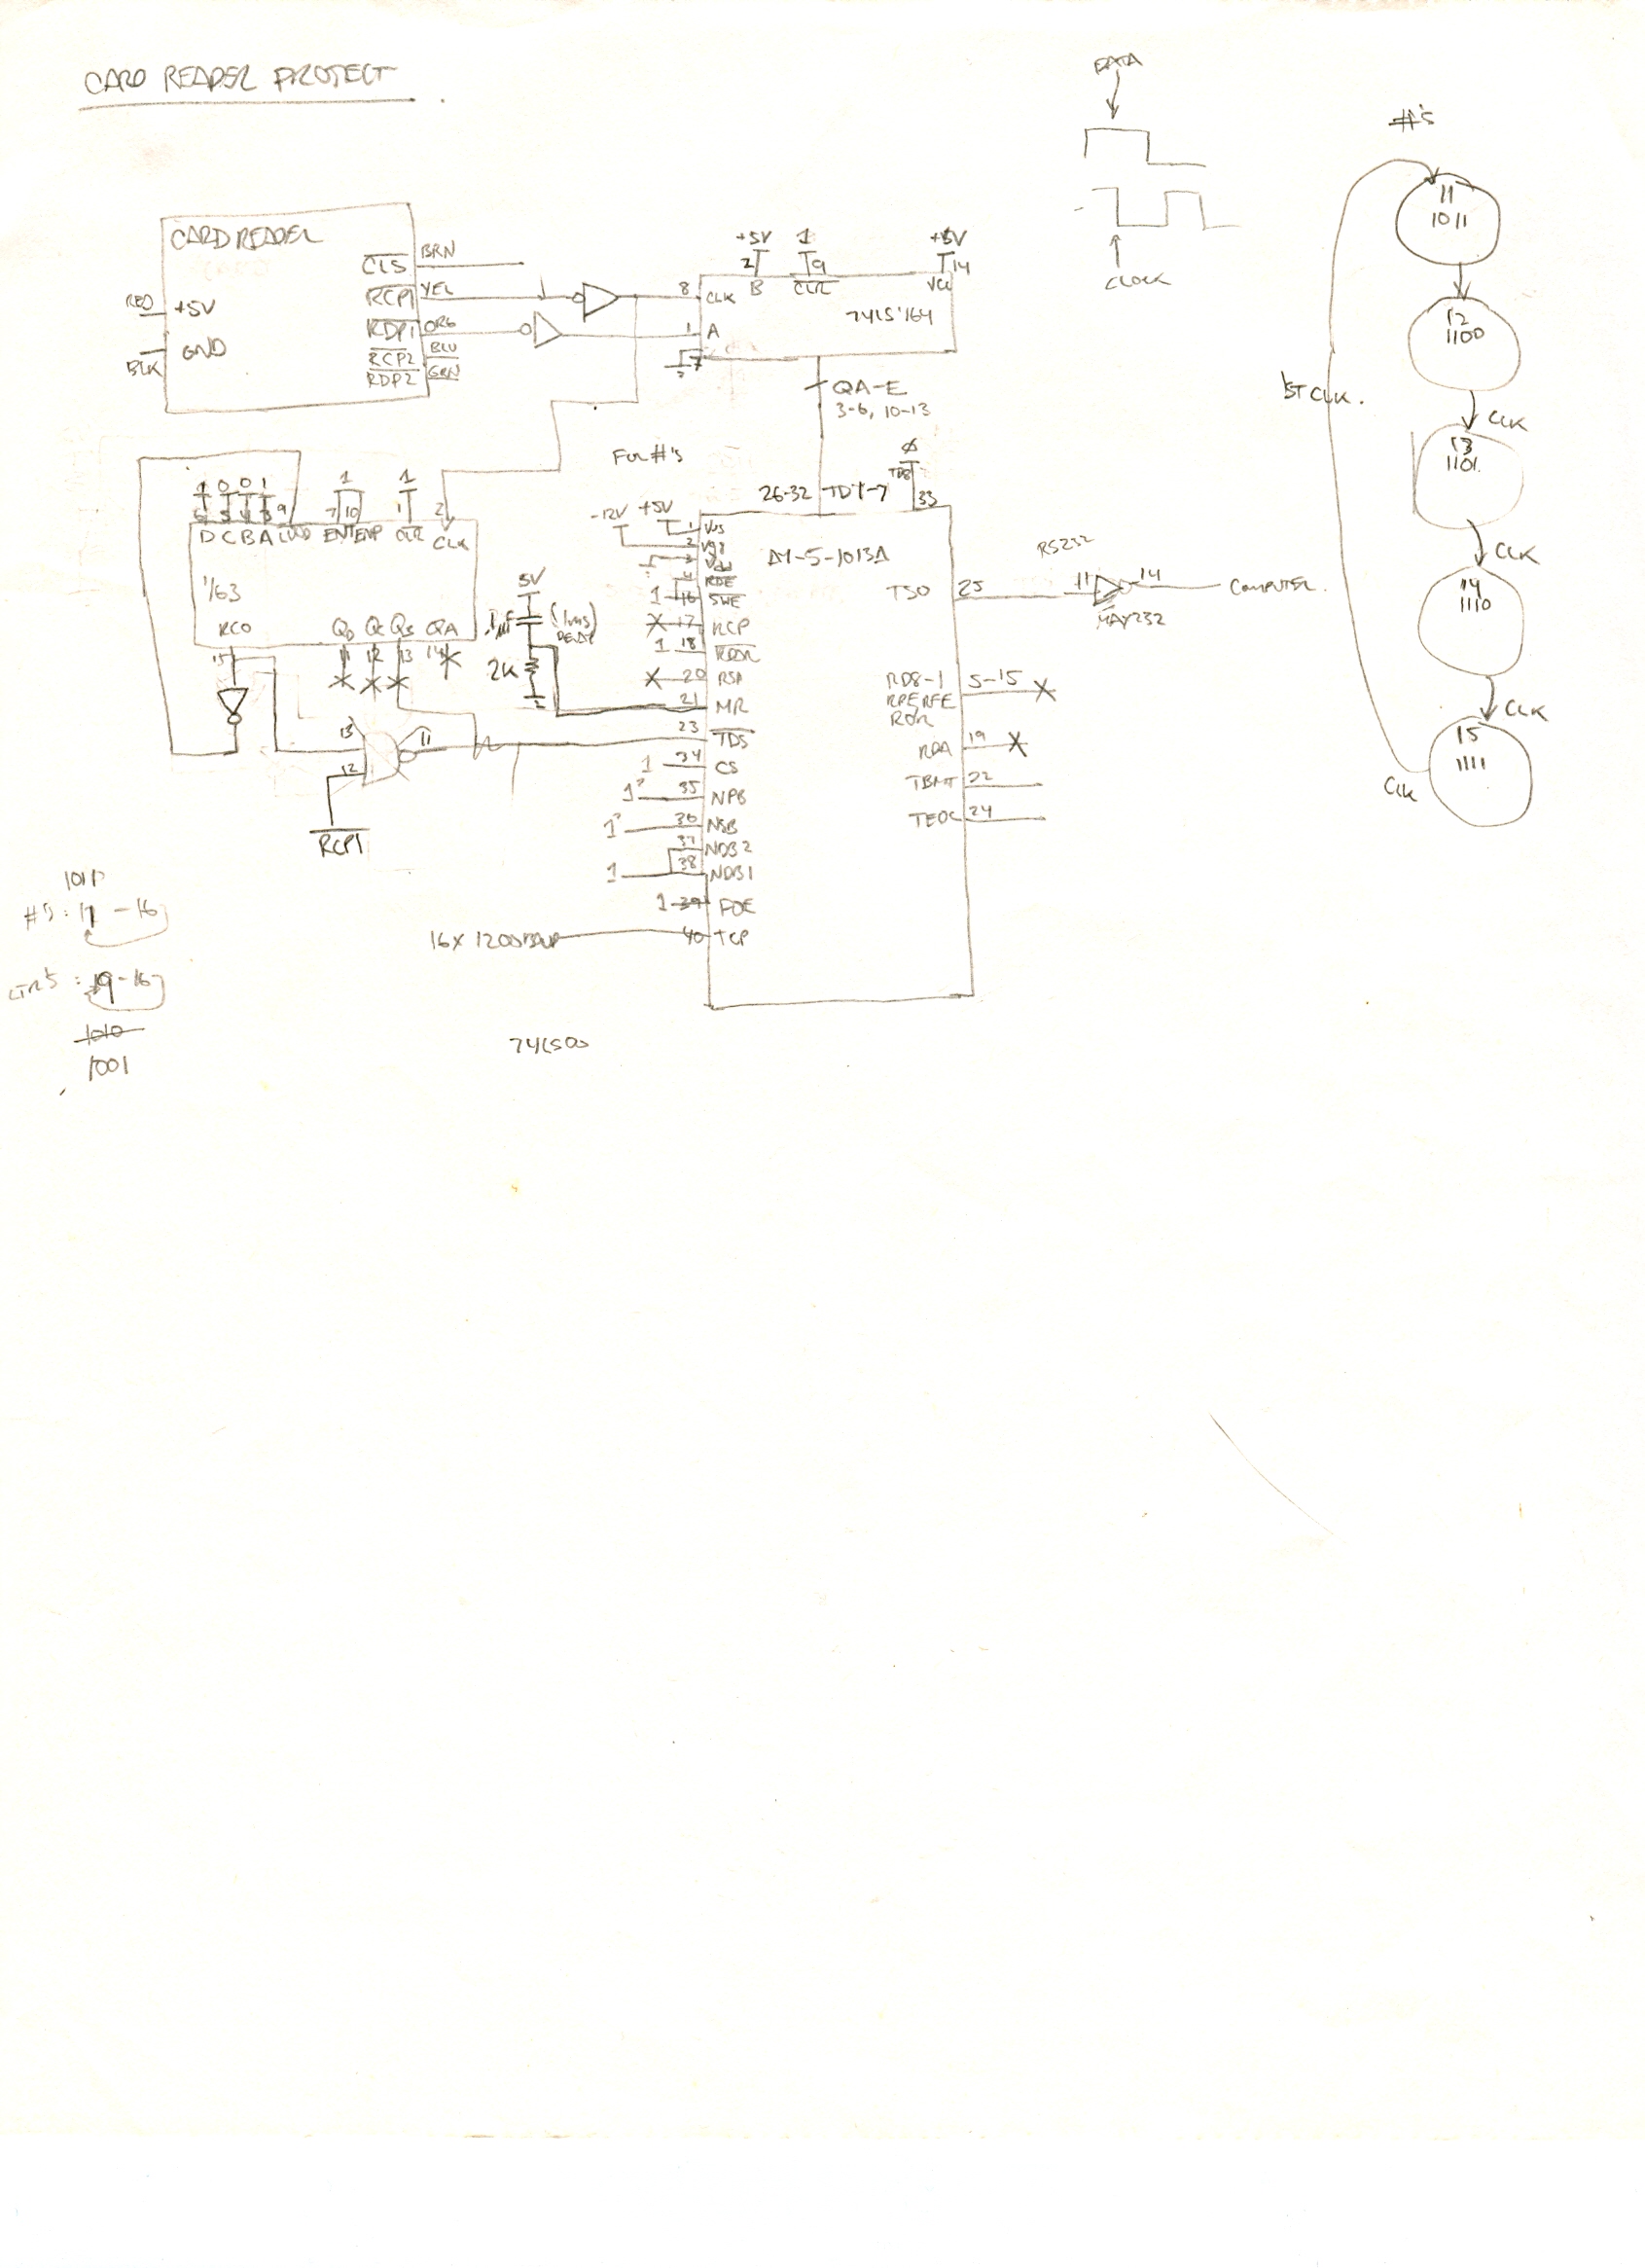 CARD READER PROJECT
DATA
CLOCK
#'s
11
1011
12
1100
CLK
13
1101
CLK
14
1110
CLK
15
1111
CLK
1ST CLK.
CARD READER
RED +5V
BLK GND
CLS BRN
RCP1 YEL
RDP1 ORG
RCP2 BLU
RDP2 GRN
+5V 1 +5V
2 9 14
8 CLK B CLR VCC
74LS'164
1 A
7
QA-E
3-6, 10-13
For #'s
1 0 0 1 1 1
6 5 4 3 9 7 10 1 2
D C B A LOAD ENT ENP CLR CLK
'163
RCO QD QC QB QA
15 11 12 13 14
5V
.1µF (1ms) DELAY
2K
13
12
11
RCP1
26-32 TD1-7
Ø
TD8
33
AY-5-1013A
-12V +5V
1 Vss
2 Vgg
3 Vdd
4 RDE
1 16 SWE
17 RCP
1 18 RDAR
20 RSI
21 MR
23 TDS
1 34 CS
1 35 NPB
1 36 NSB
37 NDB2
1 38 NDB1
1 39 POE
16X 1200 BAUD 40 TCP
TSO 25
RS232
11 14
MAX232
COMPUTER.
RD8-1 5-15
RPE RFE
ROR
RDA 19
TBMT 22
TEOC 24
1011
#'s: 11 - 16
LTR'S: 9-16
1010
1001
74LS00